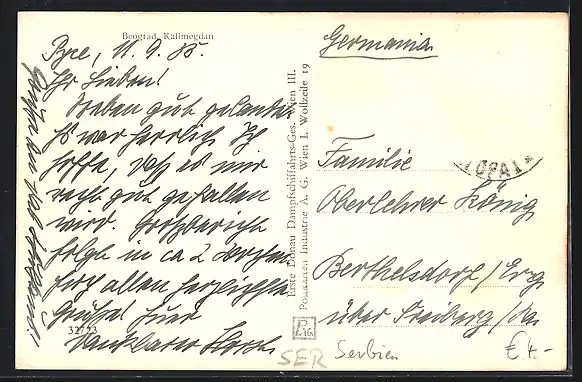 Beograd, Kalimegdan
11. 9. 35.
Ihr Lieben!
Soeben gut gelandet
Es war herrlich Ich
hoffe, daß es mir
recht gut gefallen
wird. Großbericht
folgt in ca 2 Wochen
Euch allen herzlichste
Grüße! Euer
dankbarer
32723
Erste Donau Dampfschiffahrts-Ges. Wien III.
Postkarten Industrie A. G. Wien I. Wollzeile 19
P.I.G.
Germania
Familie
Oberlehrer König
Berthelsdorf / Erzg
über Freiberg / Sa
SER
Serbien
€ 4.-